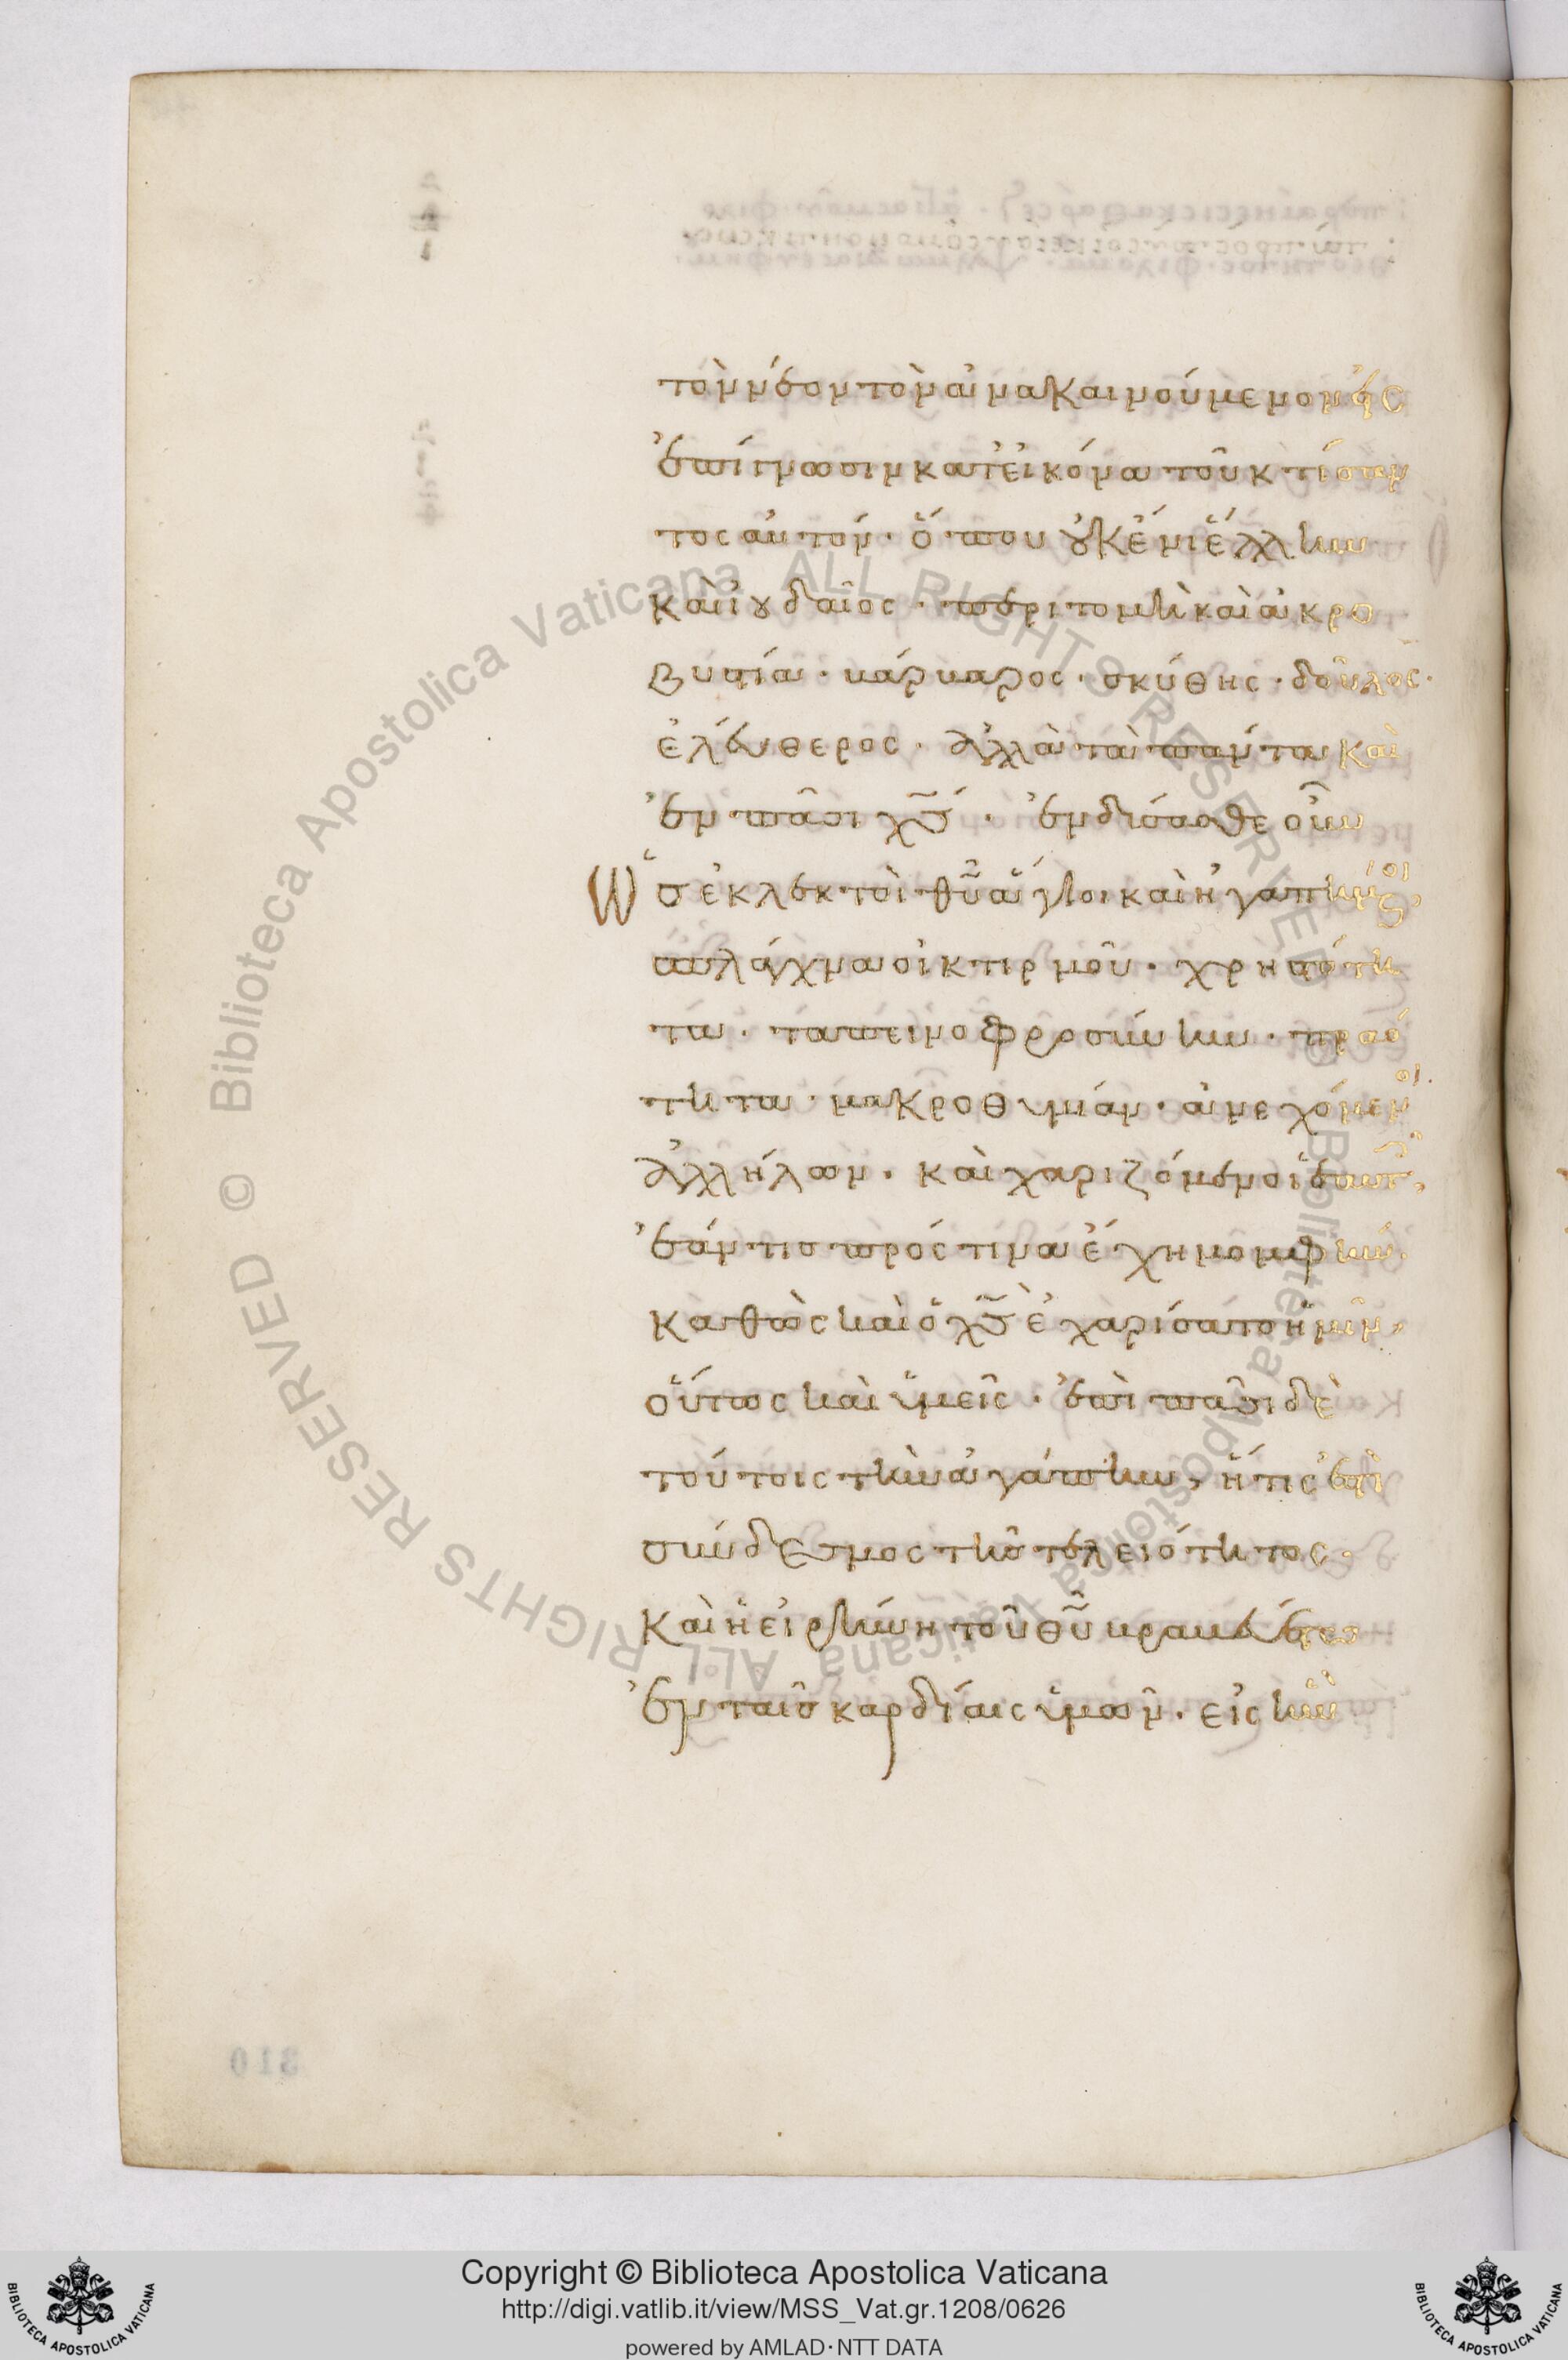 τὸν νέον τὸν ἀνακαινούμενον εἰς
ἐπίγνωσιν κατ' εἰκόνα τοῦ κτίσαν
τος αὐτόν· ὅπου οὐκ ἔνι ἕλλην
καὶ ἰουδαῖος· περιτομὴ καὶ ἀκρο
βυστία· βάρβαρος· σκύθης· δοῦλος·
ἐλεύθερος· ἀλλὰ τὰ πάντα καὶ
ἐν πᾶσι χς· ἐνδύσασθε οὖν
ὡσ ἐκλεκτοὶ θυ ἅγιοι καὶ ἠγαπημένοι
σπλάγχνα οἰκτιρμοῦ· χρηστότη
τα· ταπεινοφροσύνην· πραό
τητα· μακροθυμίαν· ἀνεχόμενοι
ἀλλήλων· καὶ χαριζόμενοι ἑαυτοῖς,
ἐάν τισ πρός τινα ἔχη μομφήν·
καθὼς καὶ ὁ χς ἐχαρίσατο ἡμῖν,
οὕτως καὶ ὑμεῖς· ἐπὶ πᾶσι δὲ
τούτοις τὴν ἀγάπην, ἥτις ἐστὶ
σύνδεσμος τῆσ τελειότητος·
καὶ ἡ εἰρήνη τοῦ θυ βραβευέτω
ἐν ταῖσ καρδίαις ὑμῶν· εἰς ἣν
310
© Biblioteca Apostolica Vaticana ALL RIGHTS RESERVED
© Biblioteca Apostolica Vaticana ALL RIGHTS RESERVED
BIBLIOTECA APOSTOLICA VATICANA
Copyright © Biblioteca Apostolica Vaticana
http://digi.vatlib.it/view/MSS_Vat.gr.1208/0626
powered by AMLAD·NTT DATA
BIBLIOTECA APOSTOLICA VATICANA